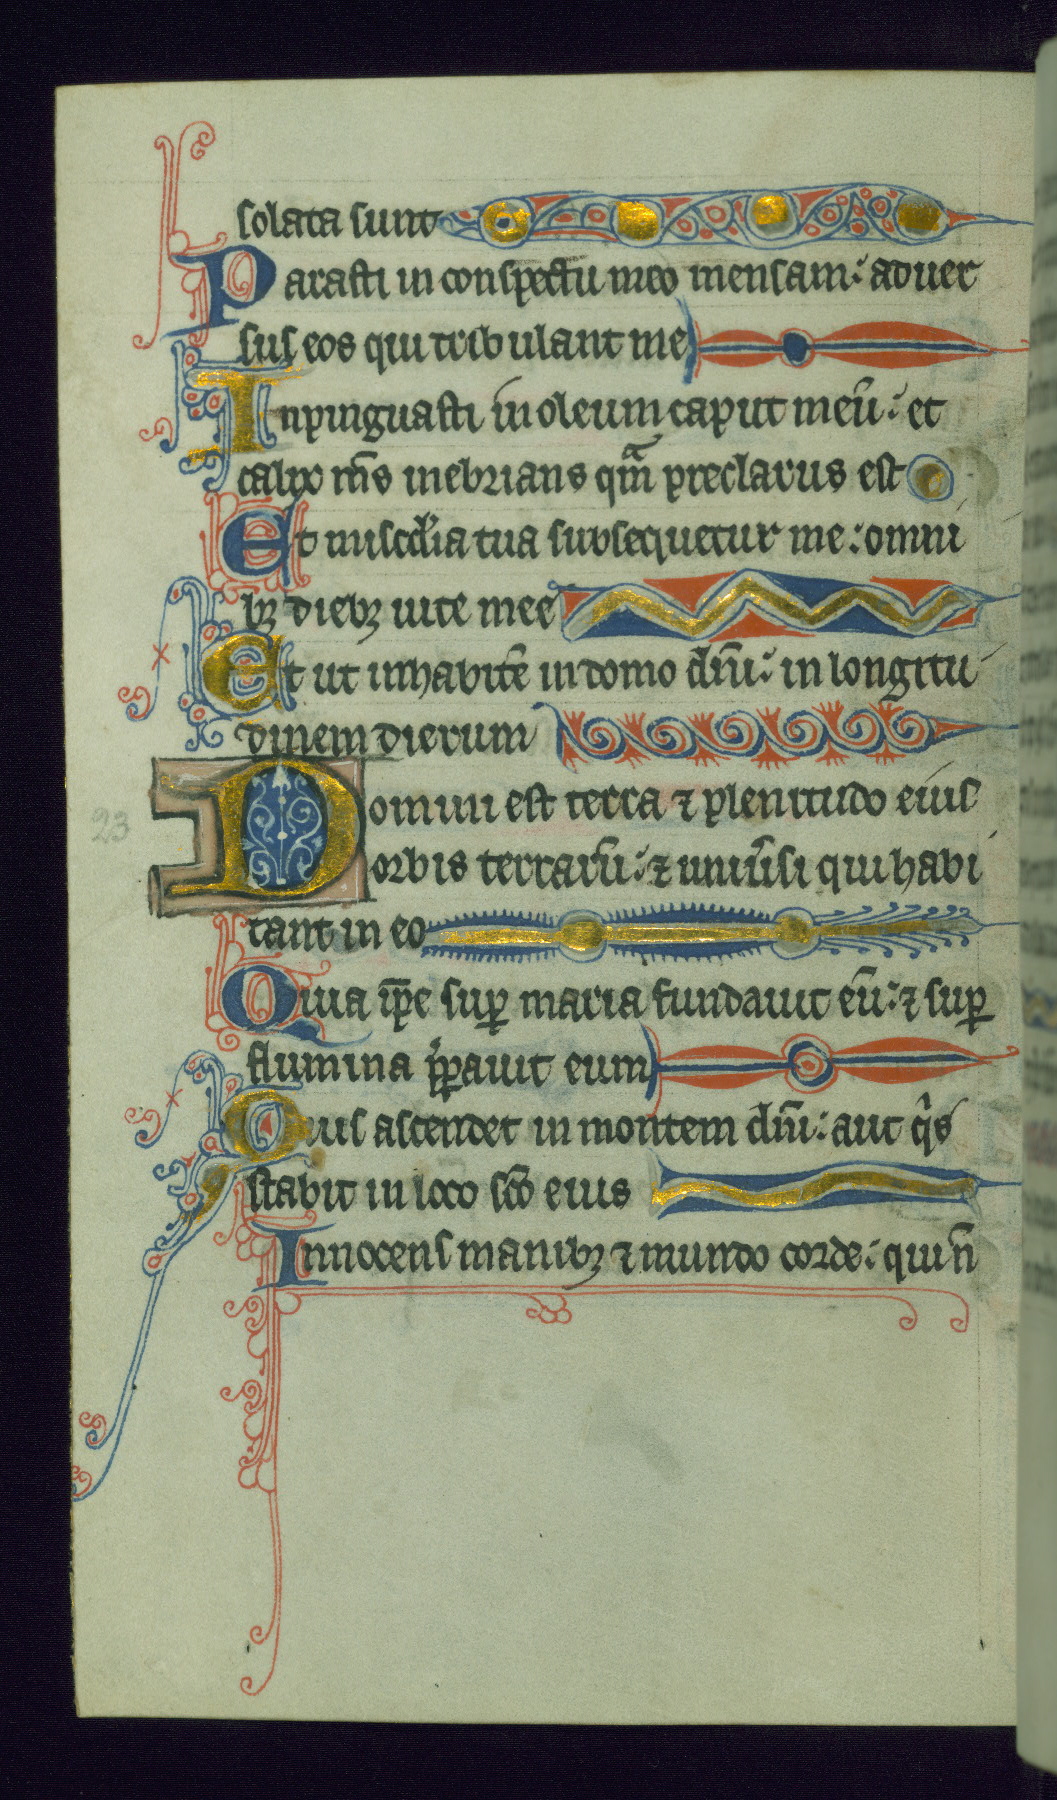 solata sunt
Parasti in conspectu meo mensam: aduer
sus eos qui tribulant me
Inpinguasti in oleum caput meū: et
calix m̄s inebrians qm̄ preclarus est
Et miscd̓ia tua subsequetur me: omni
bꝫ diebꝫ uite mee
Et ut inhabitē in domo dn̄i: in longitu
dinem dierum
23
Domini est terra ⁊ plenitudo eius
orbis terrarū: ⁊ uniu̓si qui habi
tant in eo
Quia ip̄e sup̲ maria fundauit eū: ⁊ sup̲
flumina p̄p̲auit eum
Quis ascendet in montem dn̄i: aut qͥs
stabit in loco sc̄o eius
Innocens manibꝫ ⁊ mundo corde: qui n̄